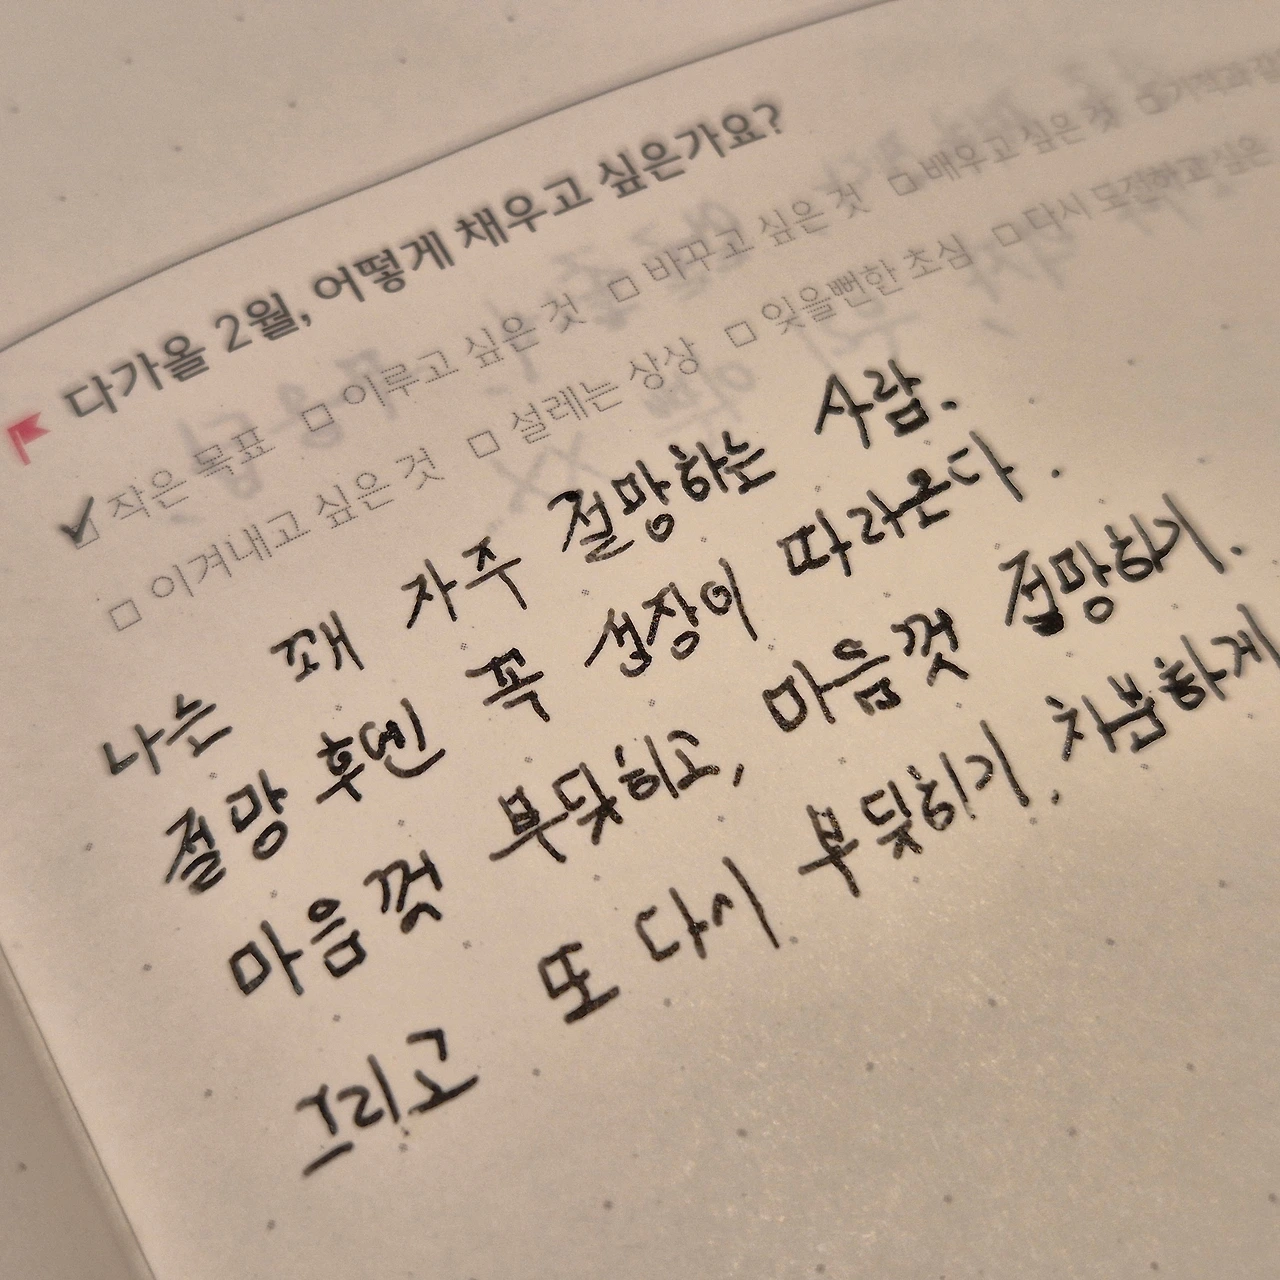 다가올 2월, 어떻게 채우고 싶은가요?
작은 목표 이루고 싶은 것 바꾸고 싶은 것 배우고 싶은 것
이겨내고 싶은 것 설레는 상상 잊을뻔한 초심 다시 도전하고 싶은
나는 꽤 자주 절망하는 사람.
절망 후엔 꼭 성장이 따라온다.
마음껏 부딪히고, 마음껏 절망하기.
그리고 또 다시 부딪히기. 차분하게